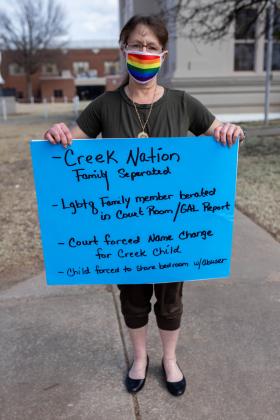 - Creek Nation
Family Seperated
- Lgbtq Family member berated
in Court Room/GAL Report
- Court forced Name Change
for Creek Child
- Child forced to share bedroom w/abuser